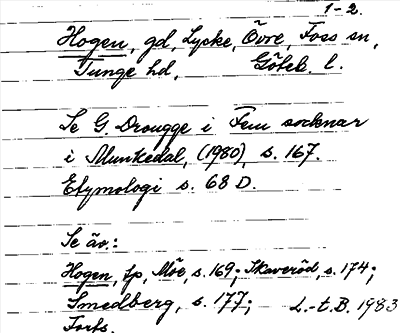 1-2.
Hogen, gd, Lycke, Övre, Foss sn,
Tunge hd, Göteb. l.
Se G. Drougge i Fem socknar
i Munkedal, (1980), s. 167.
Etymologi s. 68 D.
Se äv.:
Hogen, tp, Möe, s. 169; Skaveröd, s. 174;
Smedberg, s. 177; L.-t. B. 1983
Forts.